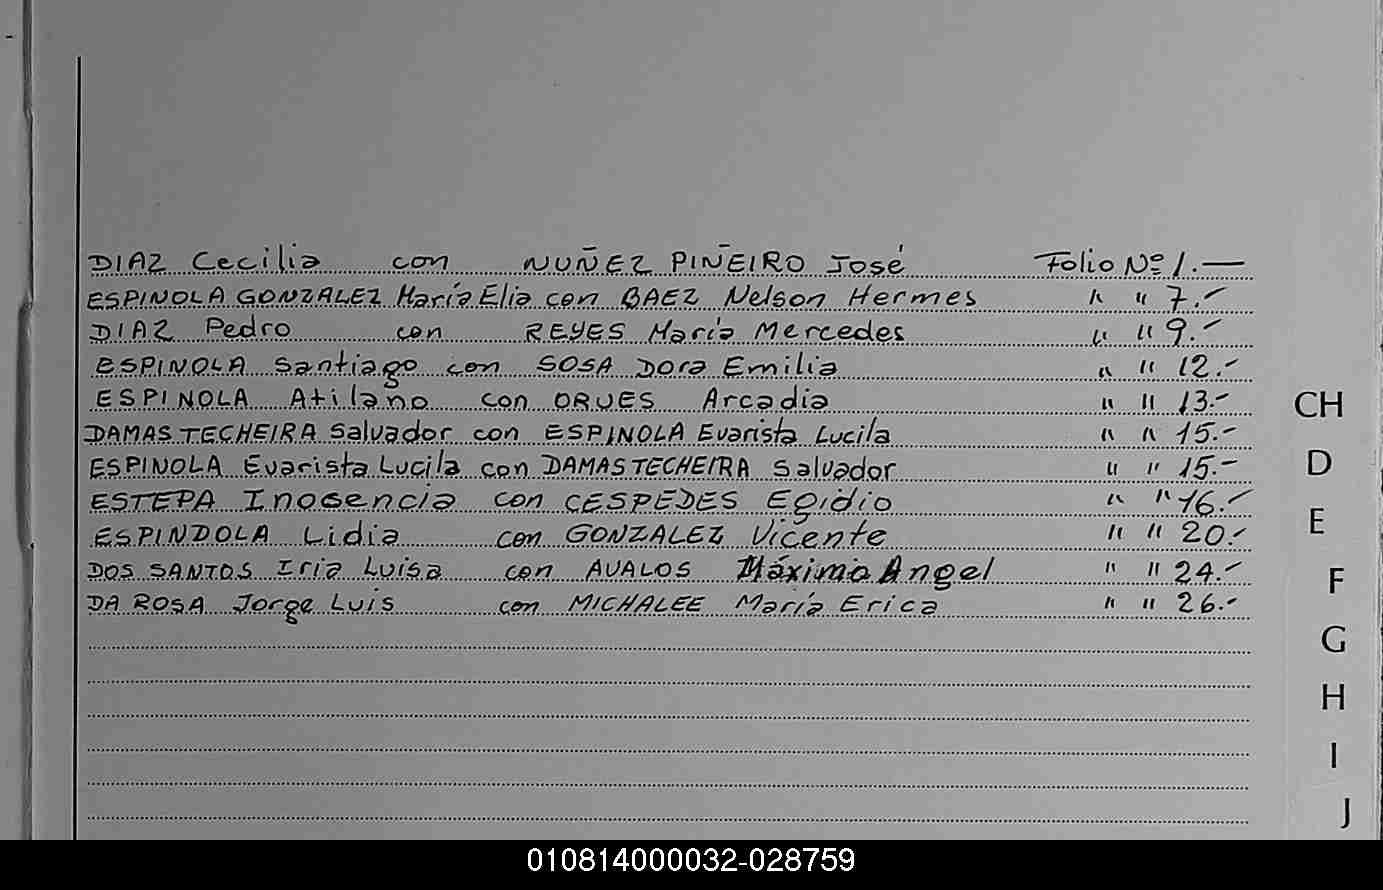 DIAZ Cecilia con NUÑEZ PIÑEIRO José Folio Nº 1.—
ESPINOLA GONZALEZ María Elia con BAEZ Nelson Hermes " " 7.-
DIAZ Pedro con REYES María Mercedes " " 9.-
ESPINOLA Santiago con SOSA Dora Emilia " " 12.-
ESPINOLA Atilano con ORUES Arcadia " " 13.-
DAMAS TECHEIRA Salvador con ESPINOLA Evarista Lucila " " 15.-
ESPINOLA Evarista Lucila con DAMAS TECHEIRA Salvador " " 15.-
ESTEPA Inosencia con CESPEDES Egidio " " 16.-
ESPINDOLA Lidia con GONZALEZ Vicente " " 20.-
DOS SANTOS Iria Luisa con AVALOS Máximo Angel " " 24.-
DA ROSA Jorge Luis con MICHALEE María Erica " " 26.-
CH
D
E
F
G
H
I
J
010814000032-028759